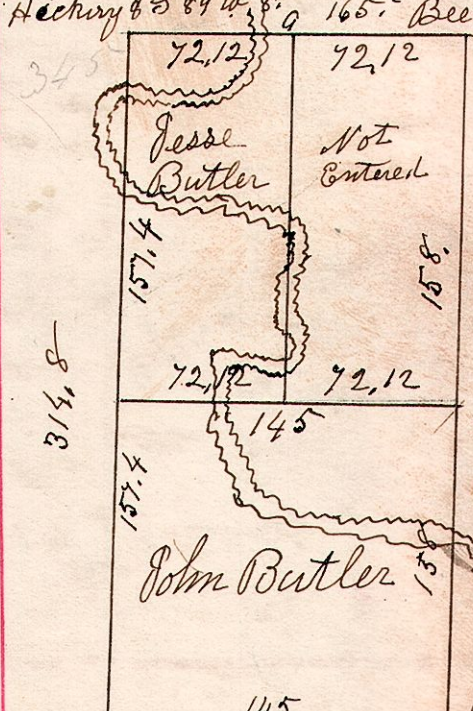 Hickory 8 S 89 W 8. 165. Bee
345
72,12 72,12
Jesse
Butler
Not
Entered
157.4
158.
314,8
72,12 72,12
145
157.4
158
John Butler
145